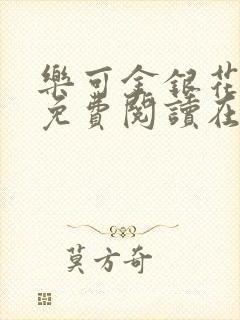 樂可金銀花
免費閱讀在
莫方奇